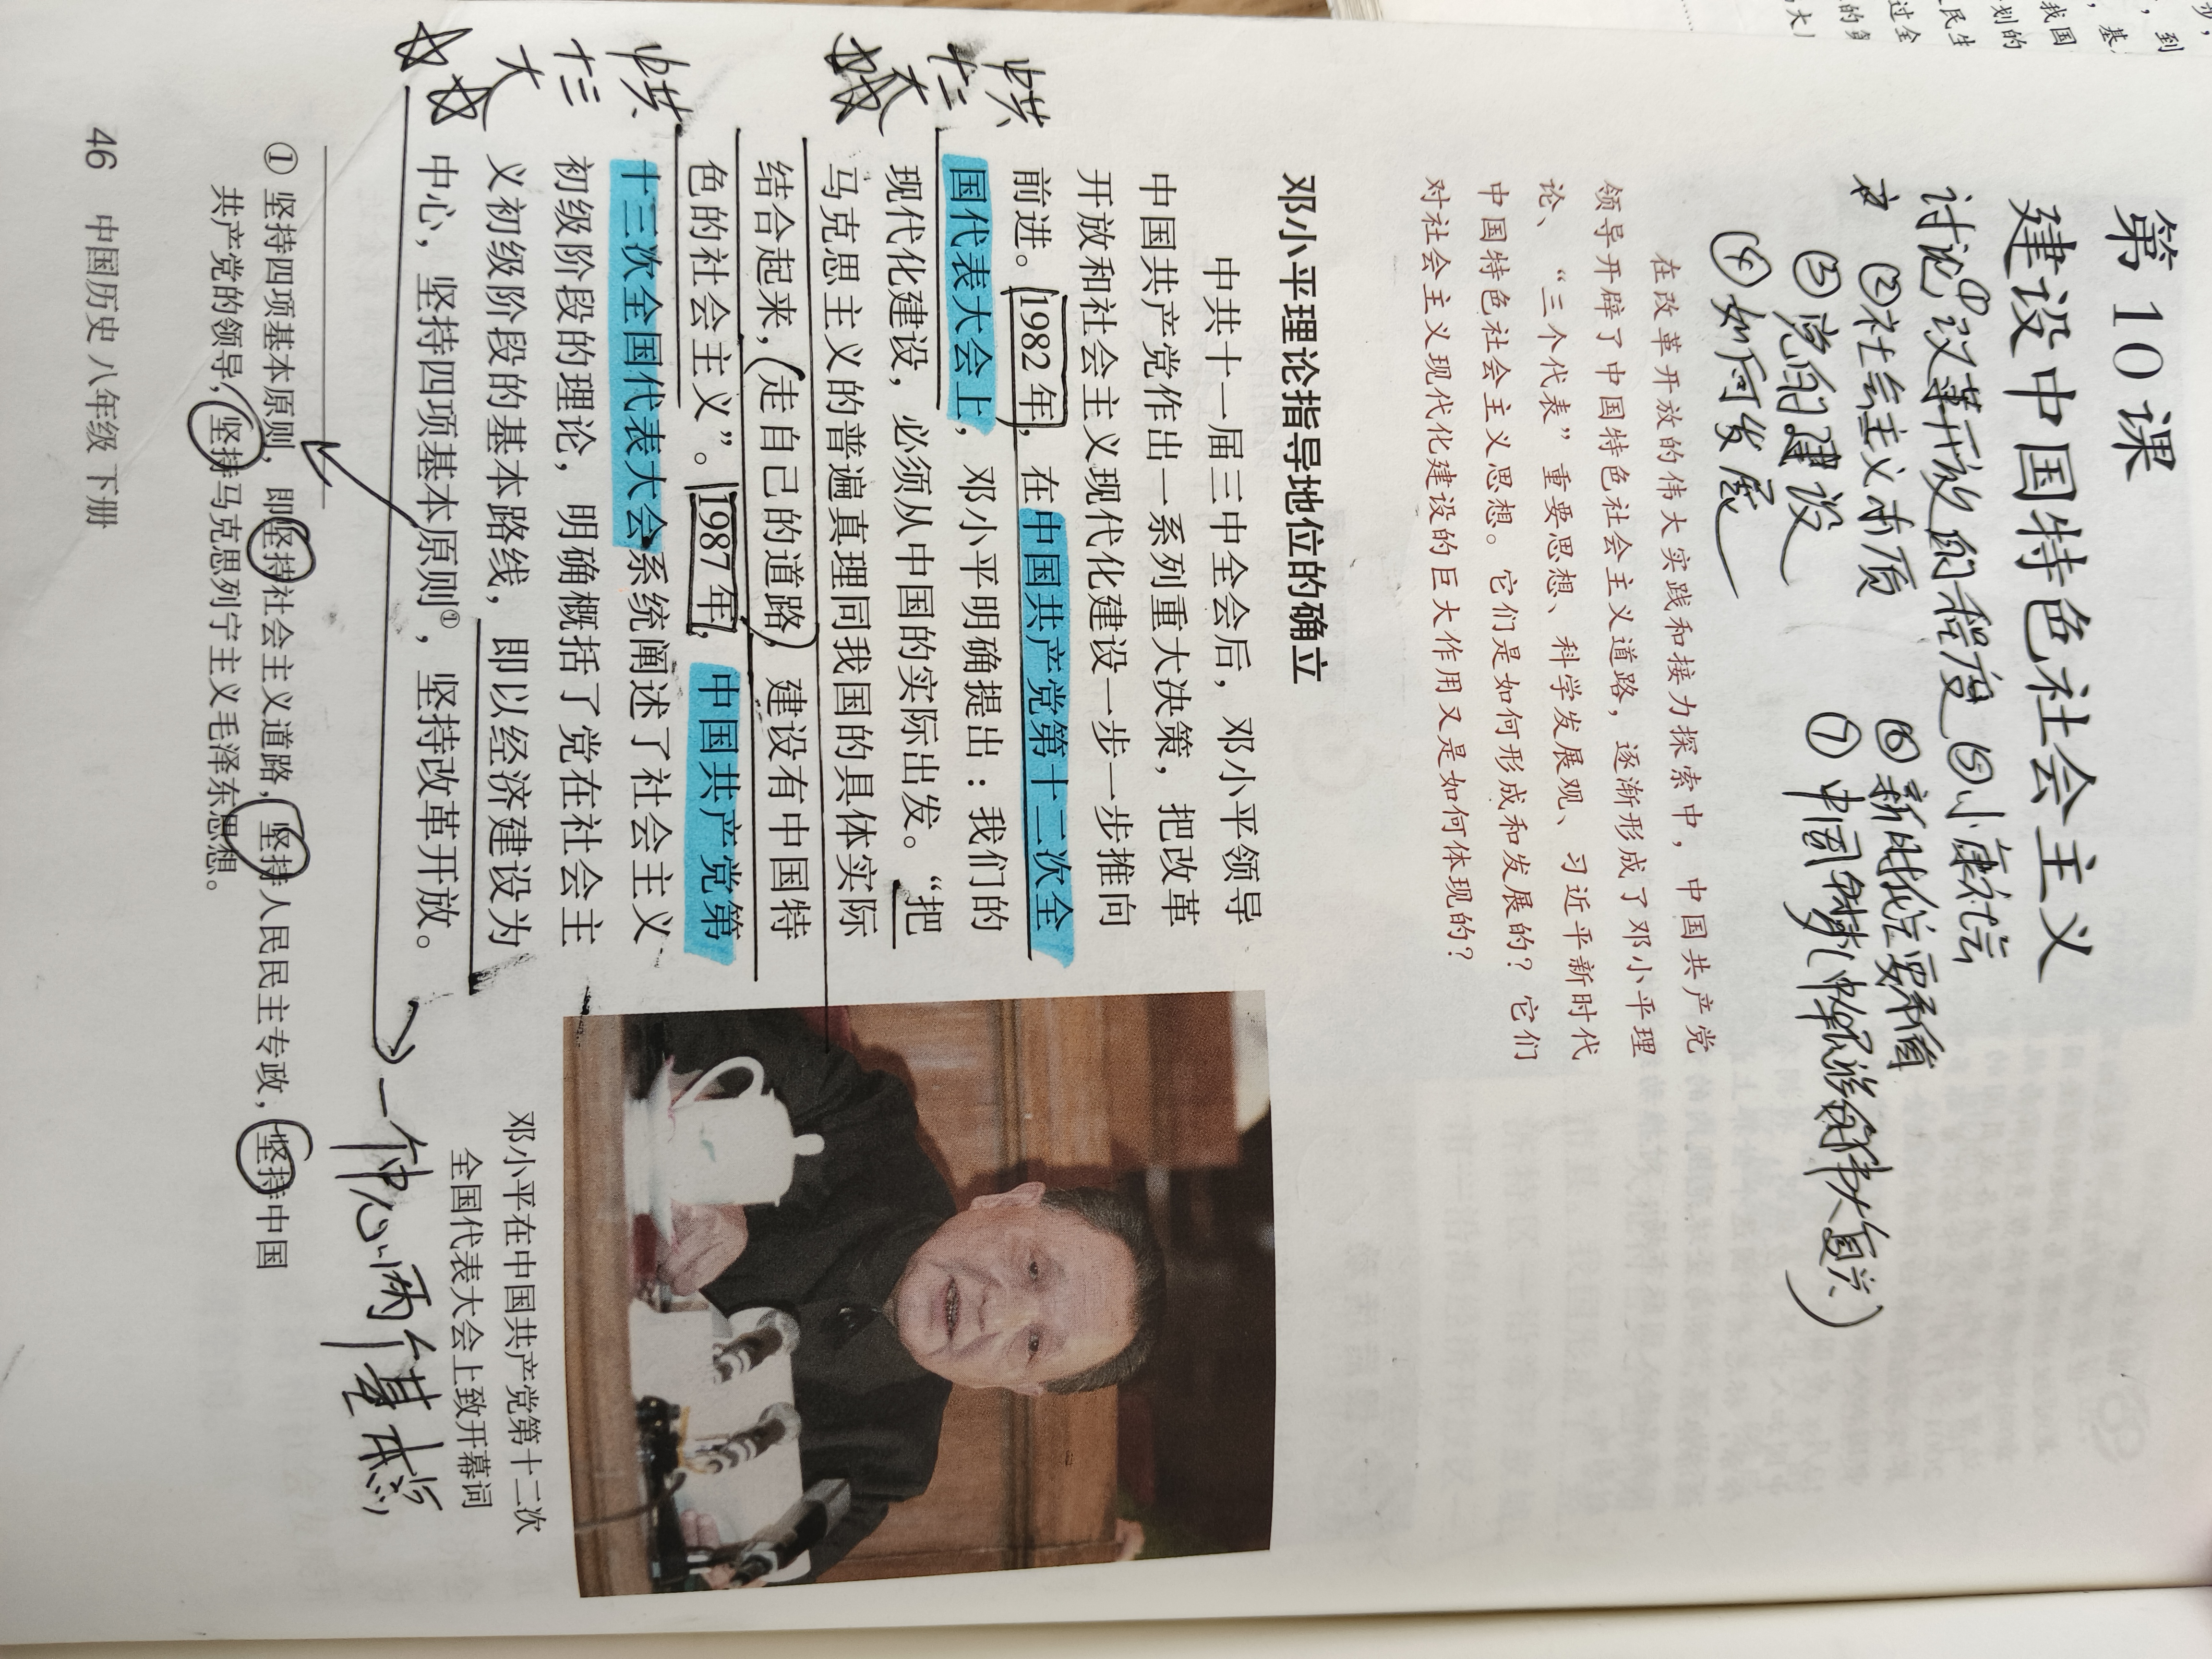 第10课
建设中国特色社会主义
讨论①议革开放的程度 ⑤小康社会
②社会主义市质 ⑥新时代
③党的建设 ⑦中国梦(中华民族伟大复兴)
④如何发展
在改革开放的伟大实践和接力探索中，中国共产党
领导开辟了中国特色社会主义道路，逐渐形成了邓小平理
论、“三个代表”重要思想、科学发展观、习近平新时代
中国特色社会主义思想。它们是如何形成和发展的？它们
对社会主义现代化建设的巨大作用又是如何体现的？
邓小平理论指导地位的确立
中共十一届三中全会后，邓小平领导
中国共产党作出一系列重大决策，把改革
开放和社会主义现代化建设一步一步推向
前进。1982年，在中国共产党第十二次全
国代表大会上，邓小平明确提出：我们的
现代化建设，必须从中国的实际出发。“把
马克思主义的普遍真理同我国的具体实际
结合起来，走自己的道路，建设有中国特
色的社会主义”。1987年，中国共产党第
十三次全国代表大会系统阐述了社会主义
初级阶段的理论，明确概括了党在社会主
义初级阶段的基本路线，即以经济建设为
中心，坚持四项基本原则①，坚持改革开放。
中共
十二
大
中共
十三
大
邓小平在中国共产党第十二次
全国代表大会上致开幕词
一中心两个基本点
① 坚持四项基本原则，即坚持社会主义道路，坚持人民民主专政，坚持中国
共产党的领导，坚持马克思列宁主义毛泽东思想。
46 中国历史 八年级 下册